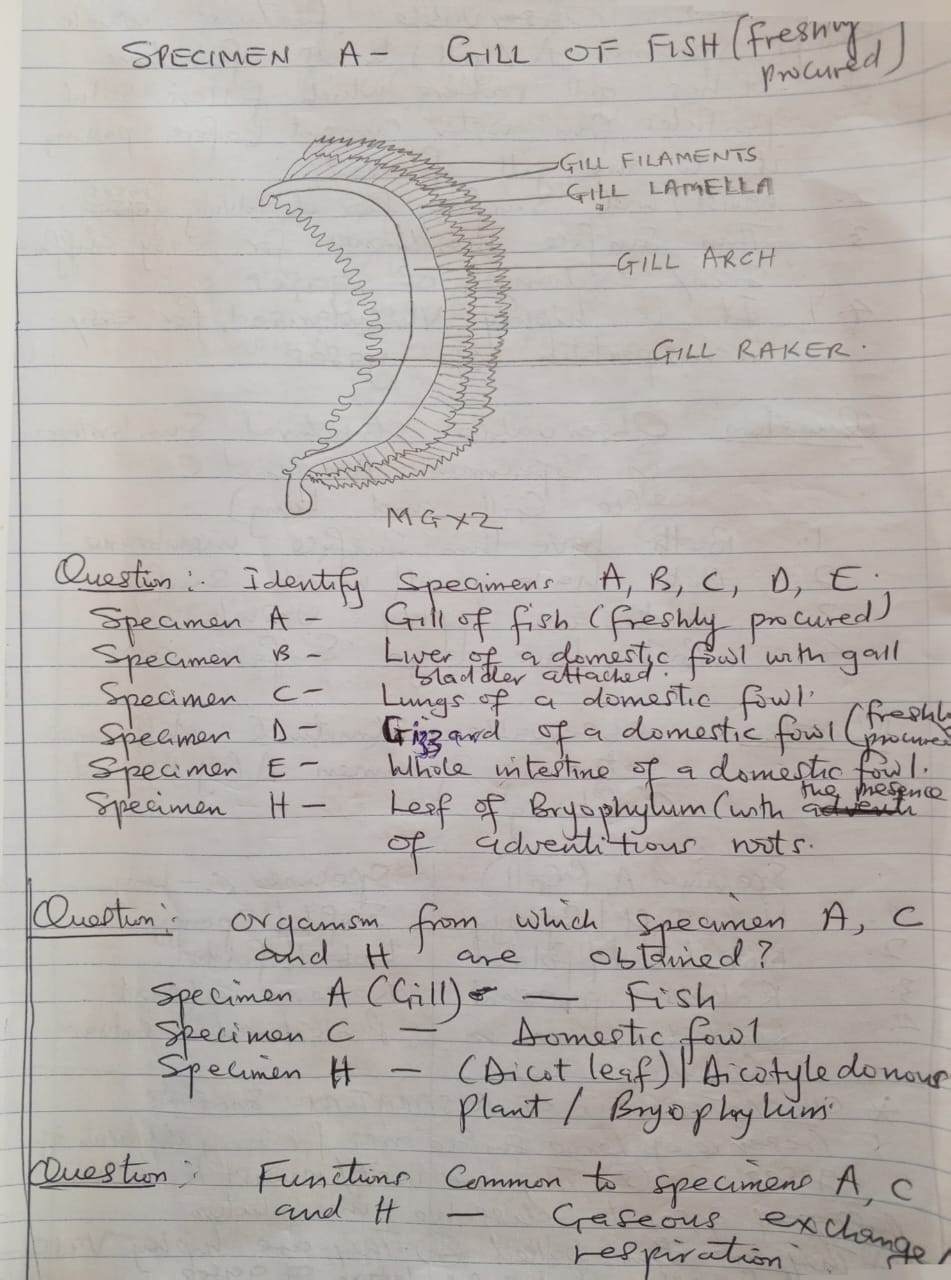 SPECIMEN A - GILL OF FISH (freshly
procured)
GILL FILAMENTS
GILL LAMELLA
GILL ARCH
GILL RAKER.
MG X2
Question:. Identify Specimens A, B, C, D, E.
Specimen A - Gill of fish (freshly procured)
Specimen B - Liver of a domestic fowl with gall
bladder attached.
Specimen C - Lungs of a domestic fowl.
Specimen D - Gizzard of a domestic fowl (freshly
procured
Specimen E - Whole intestine of a domestic fowl.
Specimen H - Leaf of Bryophylum (with the presence
of adventitious roots.
Question: Organism from which specimen A, C
and H are obtained?
Specimen A (Gill) - Fish
Specimen C - Domestic fowl
Specimen H - (Dicot leaf) | Dicotyledonous
plant / Bryophylum.
Question: Functions Common to specimens A, C
and H - Gaseous exchange /
respiration